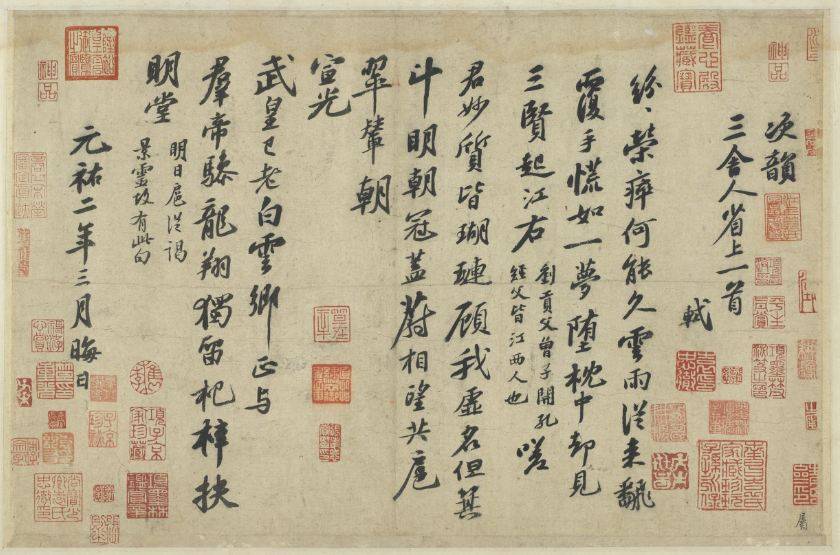 次韻
三舍人省上一首
軾
紛〻榮瘁何能久雲雨從来飜
覆手慌如一夢墮枕中却見
三賢起江右
劉貢父曾子開孔
經父皆江西人也
嗟
君妙質皆瑚璉顧我虛名但箕
斗明朝冠蓋蔚相望共扈
翠輦朝
宣光
武皇已老白雲鄉正与
羣帝驂龍翔獨留杞梓扶
明堂
明日扈從謁
景靈故有此句
元祐二年三月晦日
神品
神品